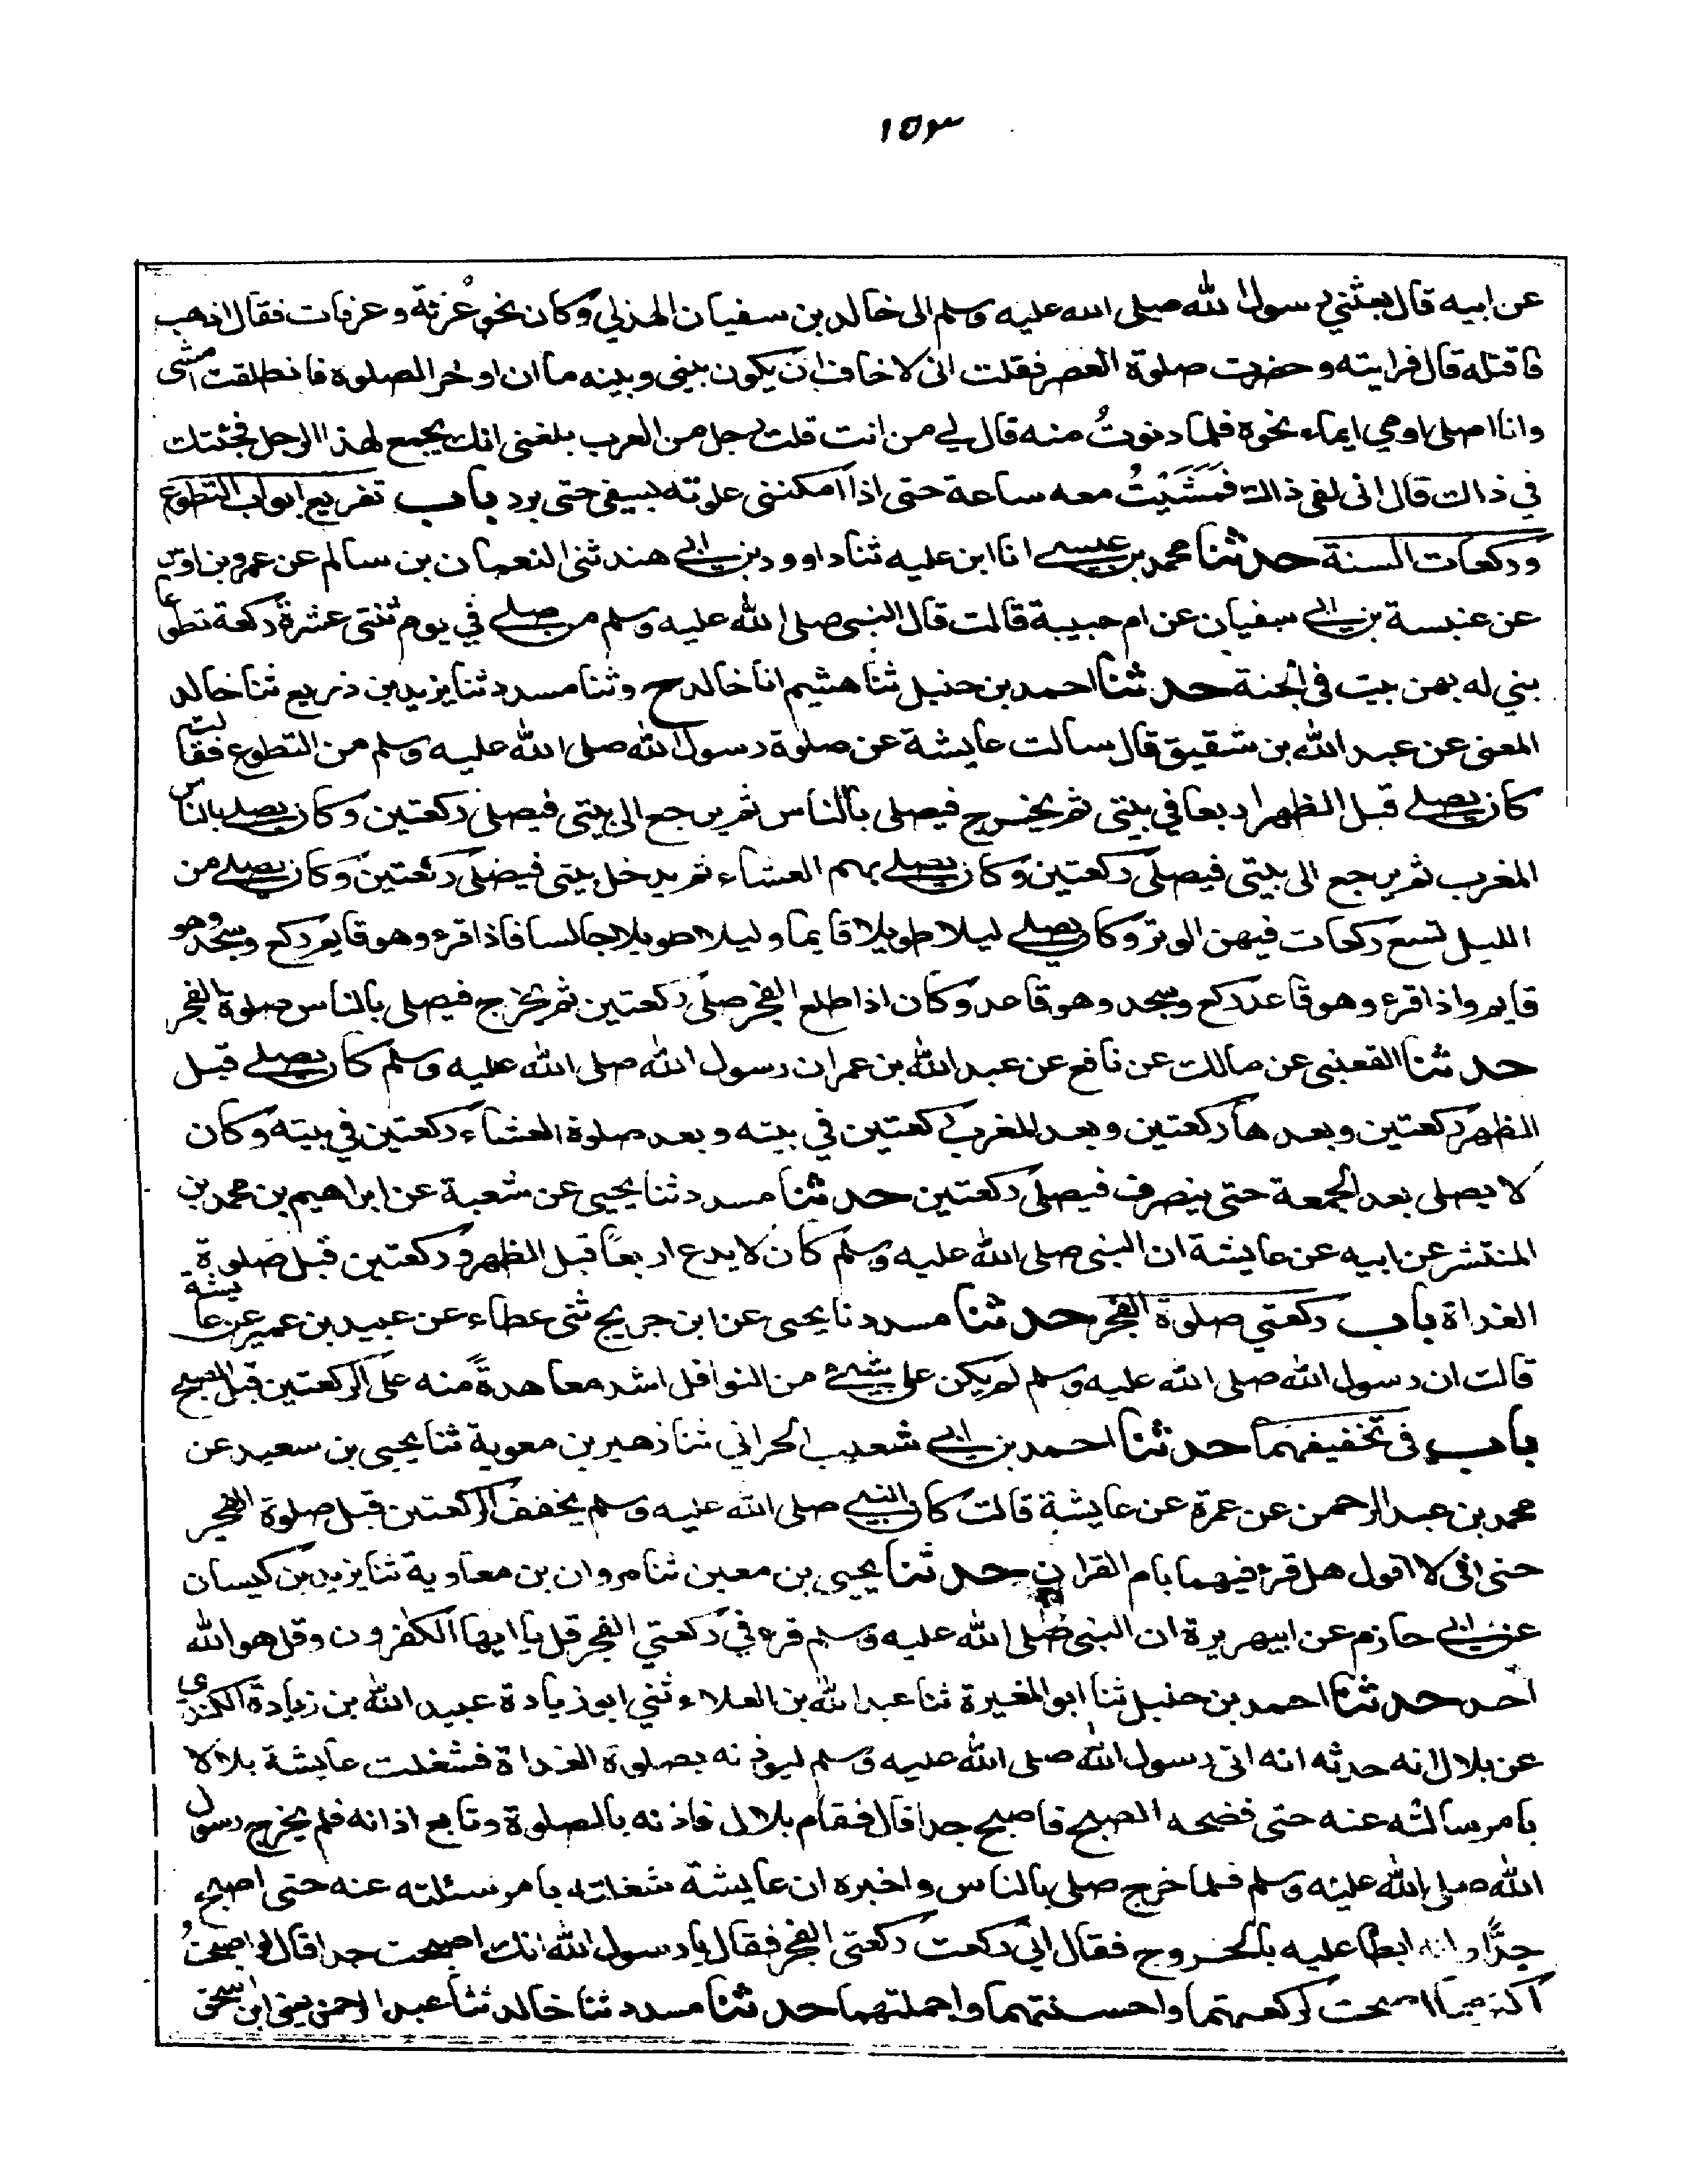 ١٥٣
عن ابيه قال بعثني رسول الله صلى الله عليه وسلم الى خالد بن سفيان الهذلي وكان نحو عُرَنة وعرفات فقال اذهب
فاقتله قال فرايته وحضرت صلوة العصر فقلت انى لاخاف ان يكون بينى وبينه ما ان اوخر الصلوة فانطلقت امشى
وانا اصلى اومي ايماء نحوه فلما دنوتُ منه قال لي من انت قلت رجل من العرب بلغنى انك تجمع لهذا الرجل فجئتك
في ذالك قال انى لفى ذالك فَمَشَيْتُ معه ساعة حتى اذا امكننى علوته بسيفى حتى برد باب تفريع ابواب التطوع
وركعات السنة حدثنا محمد بن عيسى انا ابن علیه ثنا داوود بن ابي هند ثنى النعمان بن سالم عن عمرو بن اوس
عن عنبسة بن ابي سفيان عن ام حبيبة قالت قال النبى صلى الله عليه وسلم من صلى في يوم ثنتى عشرة ركعة تطوعا
بني له بهن بيت فى الجنة حدثنا احمد بن حنبل ثنا هشيم انا خالد ح وثنا مسدد ثنا يزيد بن زريع ثنا خالد
المعنى عن عبد الله بن شقيق قال سالت عايشة عن صلوة رسول الله صلى الله عليه وسلم من التطوع فقالت
كان يصلي قبل الظهر اربعا في بيتى ثم يخرج فيصلى بالناس ثم يرجع الى بيتى فيصلى ركعتين وكان يصلي بالناس
المغرب ثم يرجع الى بيتى فيصلى ركعتين وكان يصلي بهم العشاء ثم يدخل بيتى فيصلى ركعتين وكان يصلي من
الليل تسع ركعات فيهن الوتر وكان يصلي ليلا طويلا قايما وليلا طويلا جالسا فاذا قرء وهو قايم ركع وسجد وهو
قايم واذا قرء وهو قاعد ركع وسجد وهو قاعد وكان اذا طلع الفجر صلى ركعتين ثم يخرج فيصلى بالناس صلوة الفجر
حدثنا القعنبى عن مالك عن نافع عن عبد الله بن عمر ان رسول الله صلى الله عليه وسلم كان يصلي قبل
الظهر ركعتين وبعدها ركعتين وبعد المغرب ركعتين في بيته وبعد صلوة العشاء ركعتين في بيته وكان
لا يصلى بعد الجمعة حتى ينصرف فيصلى ركعتين حدثنا مسدد ثنا يحيى عن شعبة عن ابراهيم بن محمد بن
المنتشر عن ابيه عن عايشة ان النبى صلى الله عليه وسلم كان لا يدع اربعاً قبل الظهر وركعتين قبل صلوة
الغداة باب ركعتي صلوة الفجر حدثنا مسدد نا يحيى عن ابن جريج ثنى عطاء عن عبيد بن عمير عن عايشة
قالت ان رسول الله صلى الله عليه وسلم لم يكن على شيء من النوافل اشد معاهدةً منه على الركعتين قبل الصبح
باب فى تخفيفهما حدثنا احمد بن ابي شعيب الحراني ثنا زهير بن معوية ثنا يحيى بن سعيد عن
محمد بن عبد الرحمن عن عمرة عن عايشة قالت كان النبي صلى الله عليه وسلم يخفف الركعتين قبل صلوة الفجر
حتى انى لاقول هل قرء فيهما بام القران حدثنا يحيى بن معين ثنا مروان بن معاوية ثنا يزيد بن كيسان
عن ابي حازم عن ابيهريرة ان النبى صلى الله عليه وسلم قرء في ركعتي الفجر قل يا ايها الكفرون وقل هو الله
احد حدثنا احمد بن حنبل ثنا ابو المغيرة ثنا عبد الله بن العلاء ثني ابو زيادة عبيد الله بن زيادة الكندي
عن بلال انه حدثه انه اتى رسول الله صلى الله عليه وسلم ليوذنه بصلوة الغداة فشغلت عايشة بلالا
بامر سالته عنه حتى فضحه الصبح فاصبح جدا قال فقام بلال فاذنه بالصلوة وتابع اذانه فلم يخرج رسول
الله صلى الله عليه وسلم فلما خرج صلى بالناس واخبره ان عايشة شغلته بامر سئلته عنه حتى اصبح
جدًّا وانه ابطا عليه بالخروج فقال انى ركعت ركعتى الفجر فقال يا رسول الله انك اصبحت جدا قال لو اصبحتُ
اكثر مما اصبحت لركعتهما واحسنتهما واجملتهما حدثنا مسدد ثنا خالد ثنا عبد الرحمن يعنى ابن اسحق